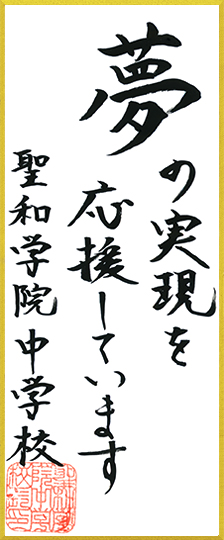 夢の実現を
応援しています
聖和学院中学校